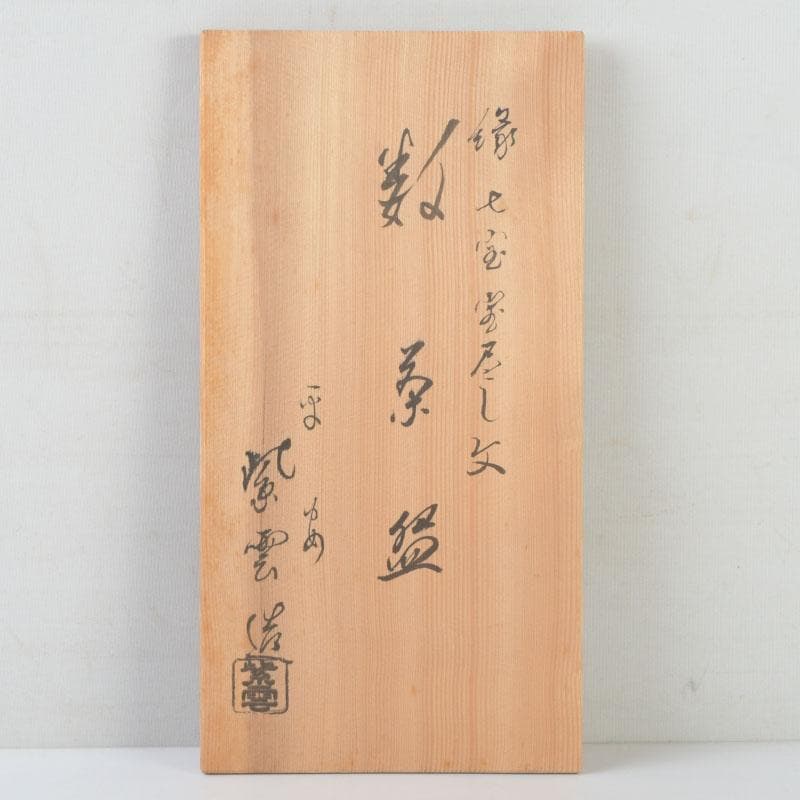 縁七宝宝尽し文
数茶盌
平安
紫雲造
紫雲